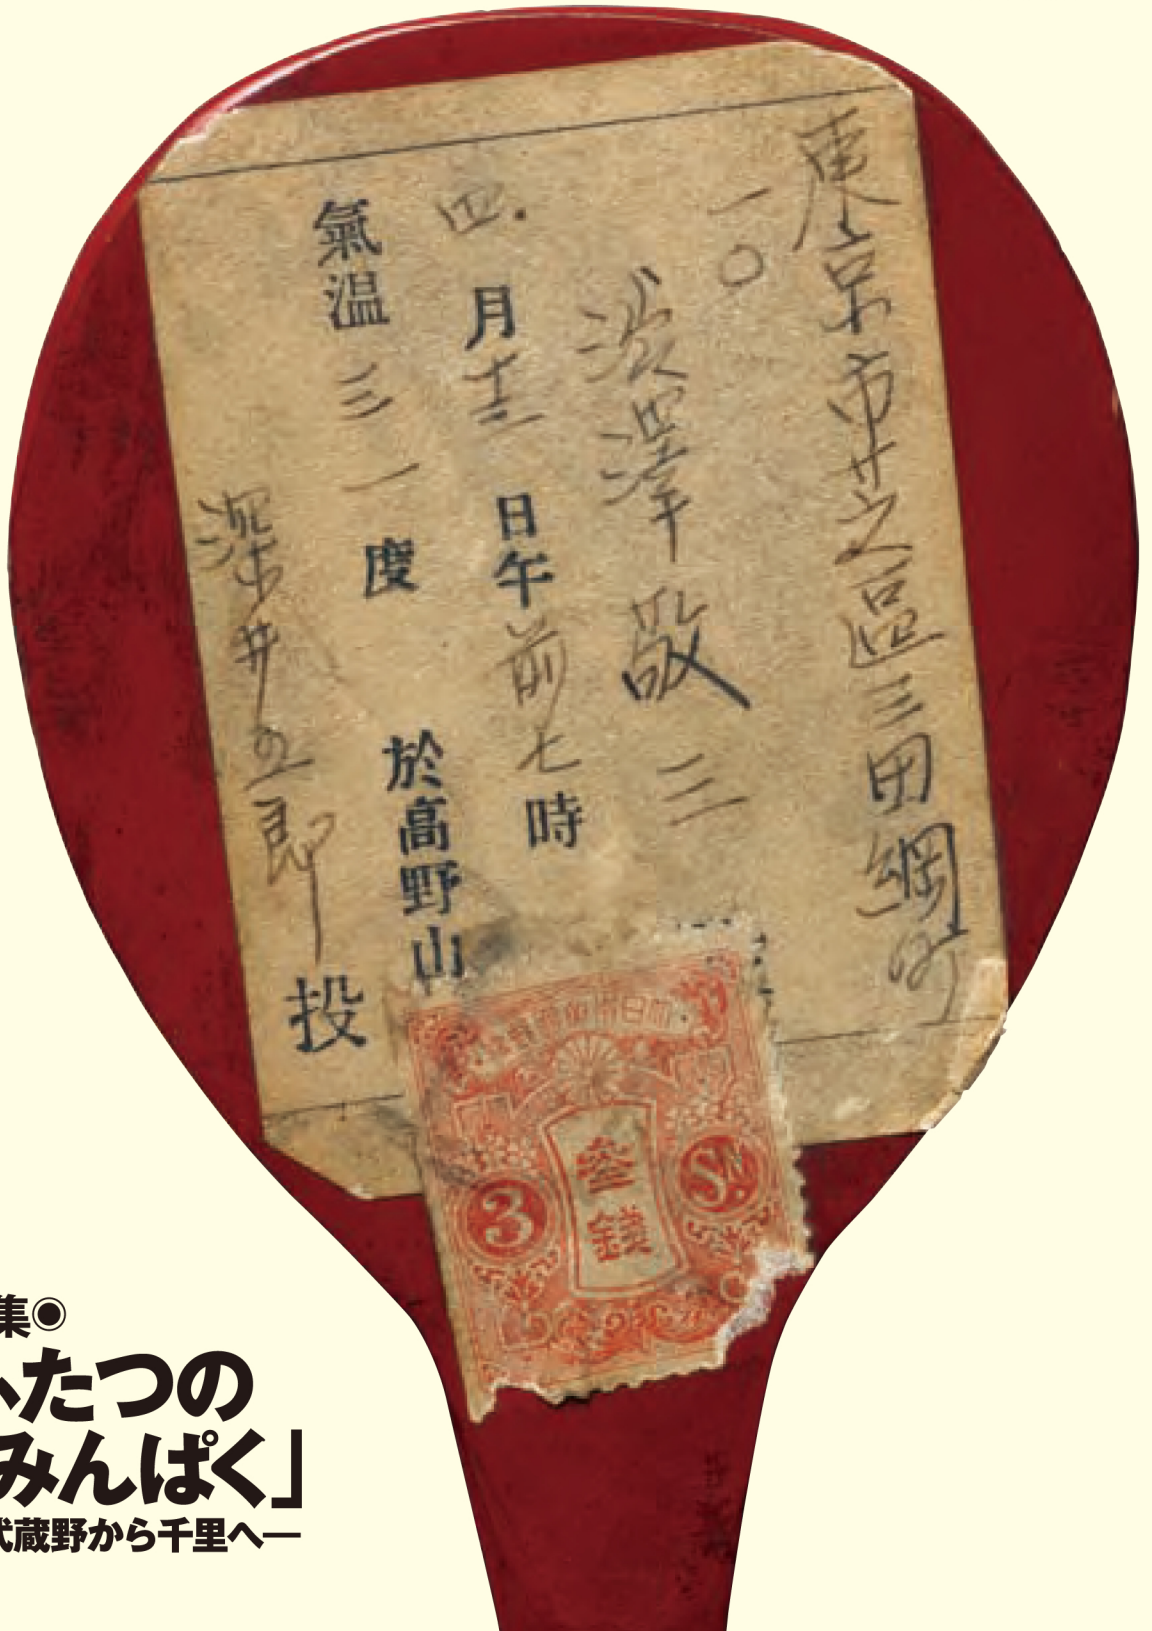 東京市芝區三田綱町
一〇
渋澤敬三
四.月十三日午前七時
氣温三一度 於高野山
深井 郎 投
大日本帝國郵便
参錢
3
Sn.
集◉
ふたつの
みんぱく」
武蔵野から千里へ―